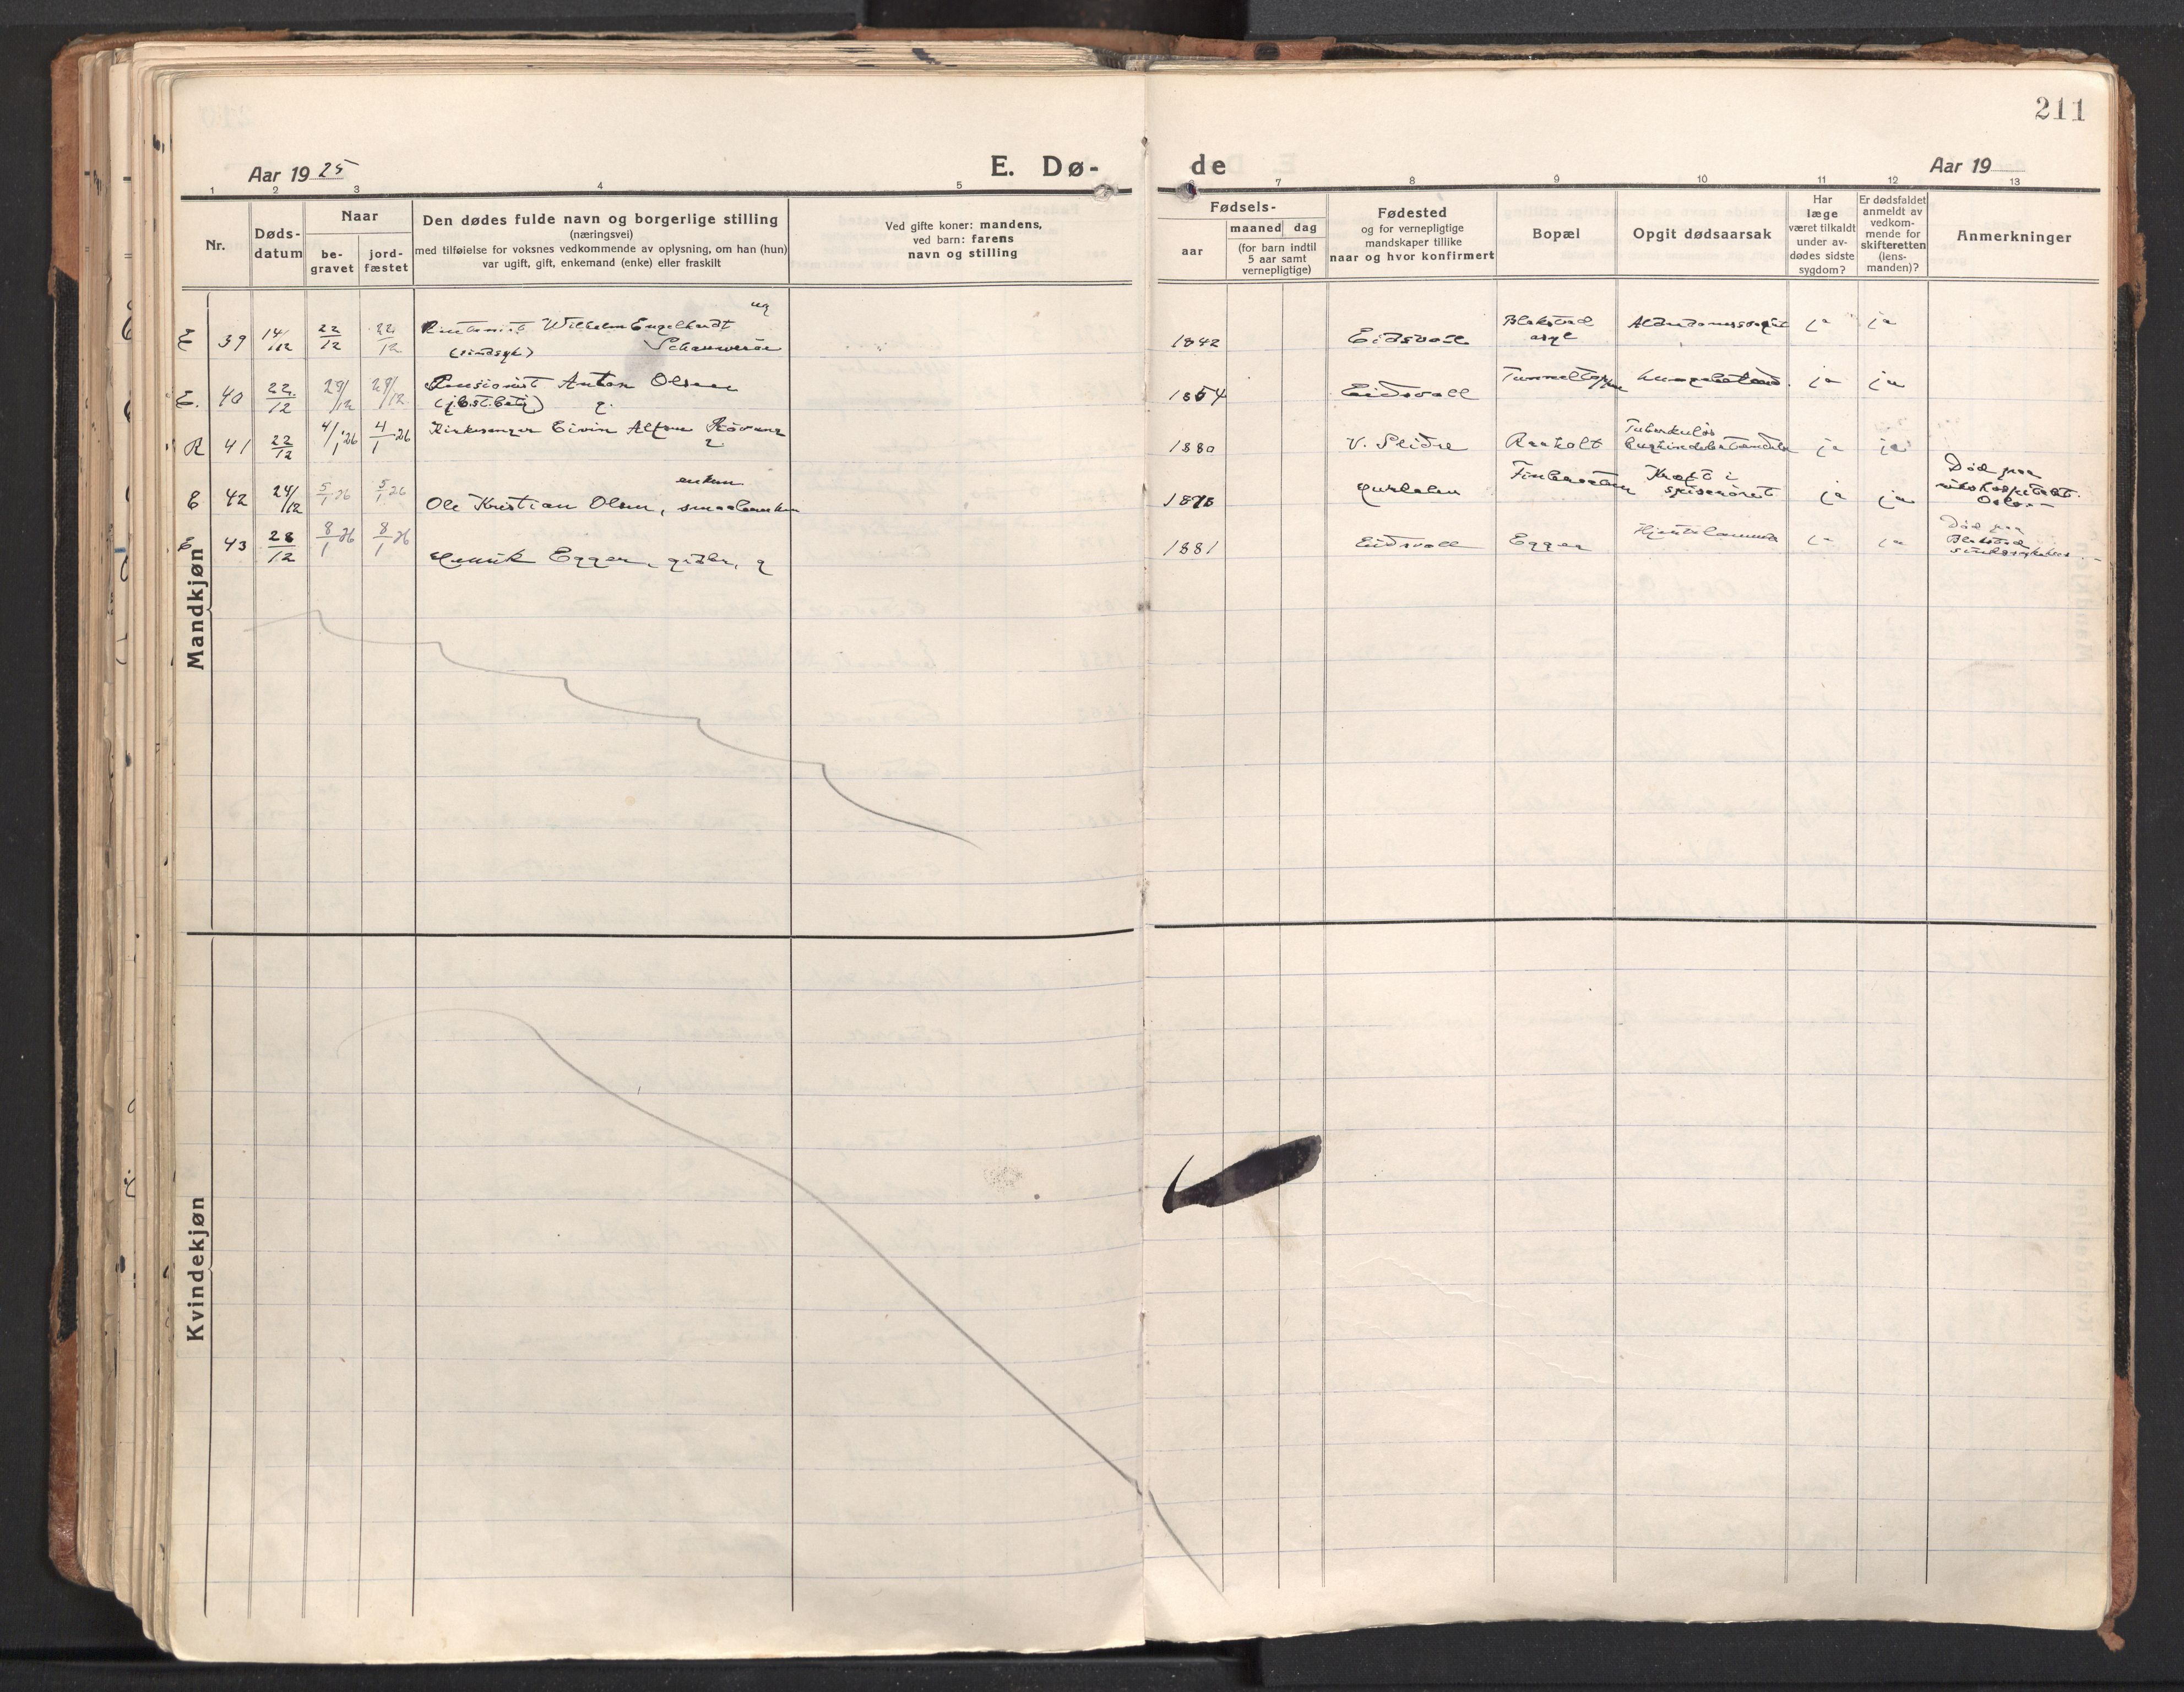 211
Aar 19 25
E. Dø-
de
Aar 19
1 2 3 4 5 7 8 9 10 11 12 13
Nr.
Døds-
datum
Naar
be-
gravet
jord-
fæstet
Den dødes fulde navn og borgerlige stilling
(næringsvei)
med tilføielse for voksnes vedkommende av oplysning, om han (hun)
var ugift, gift, enkemand (enke) eller fraskilt
Ved gifte koner: mandens,
ved barn: farens
navn og stilling
Fødsels-
aar
maaned dag
(for barn indtil
5 aar samt
vernepligtige)
Fødested
og for vernepligtige
mandskaper tillike
naar og hvor konfirmert
Bopæl
Opgit dødsaarsak
Har
læge
været tilkaldt
under av-
dødes sidste
sygdom?
Er dødsfaldet
anmeldt av
vedkom-
mende for
skifteretten
(lens-
manden)?
Anmerkninger
Mandkjøn
E 39 14/12 22/12 22/12 Wilhelm Engelhardt ug
(sindsyk)
1842 Eidsvoll Blakstad asyl ja ja
E. 40 22/12 29/12 29/12 Pensionist Anton Olsen
g.
1854 Eidsvoll ja ja
R 41 22/12 4/1 '26 4/1 26 Kirkesanger Eivin
g
1880 V. Slidre Raaholt Tuberkuløs ja ja
E 42 24/12 5/1 26 5/1 26 enkem
Ole Kristian Olsen,
1876 Hurdalen Kræft i spiserøret ja ja Død paa rikshospitalet. Oslo.
E 43 28/12 8/1 26 8/1 26 Henrik Egger, g
1881 Eidsvoll Egger ja ja Død paa Blakstad sindssykehus.
Kvindekjøn